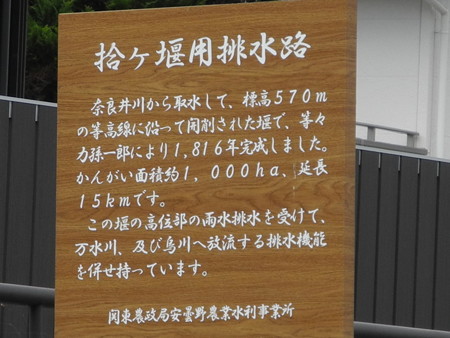 拾ヶ堰用排水路
奈良井川から取水して、標高570m
の等高線に沿って開削された堰で、等々
力孫一郎により1,816年完成しました。
かんがい面積約1,000ha、延長
15kmです。
この堰の高位部の雨水排水を受けて、
万水川、及び烏川へ放流する排水機能
を併せ持っています。
関東農政局安曇野農業水利事業所